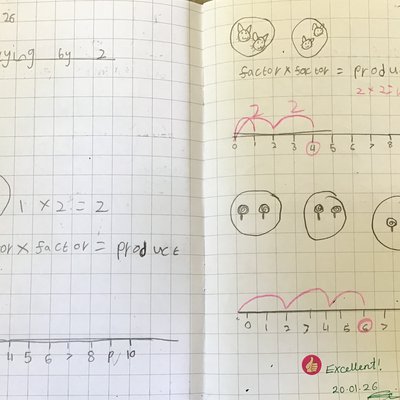 26
ying by 2
1 × 2 = 2
or × factor = product
4 5 6 7 8 9 10
factor × factor = produ
2 × 2 =
2 2
0 1 2 3 4 5 6 7 8
0 1 2 3 4 5 6 7
Excellent!
20.01.26